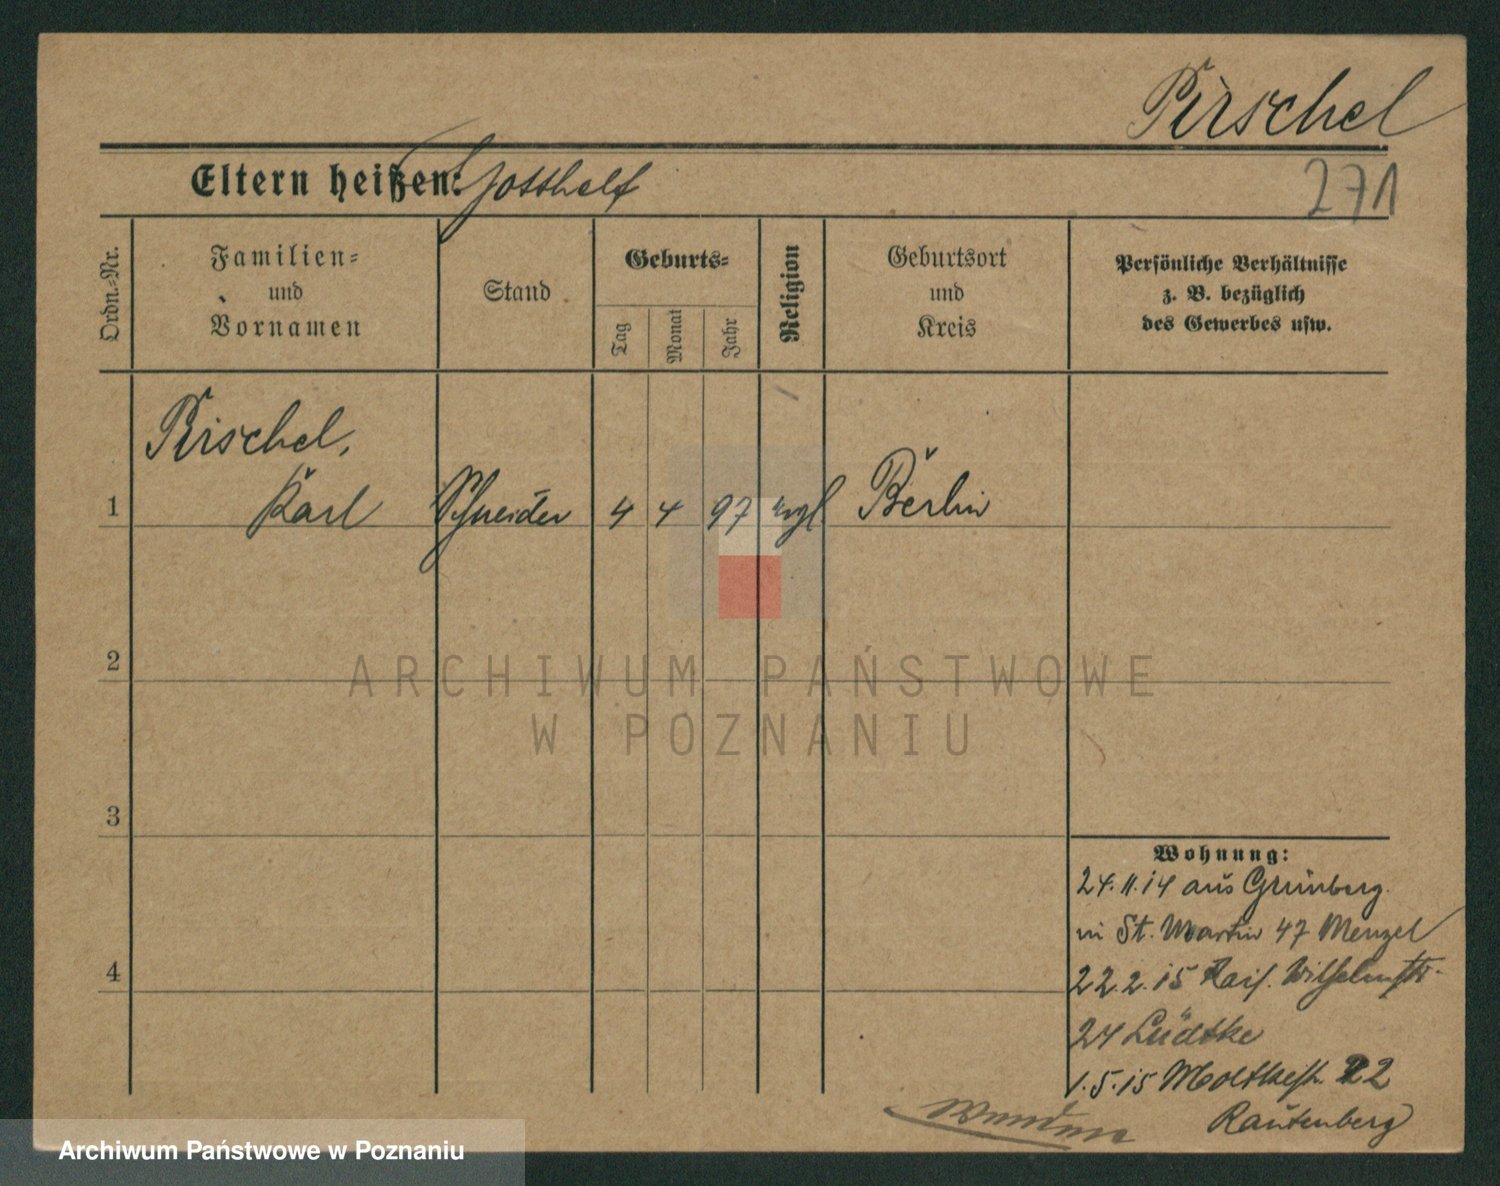 Pirschel
Eltern heißen: Gotthelf
271
Ordn.-Nr.
Familien-
und
Vornamen
Stand
Geburts-
Tag
Monat
Jahr
Religion
Geburtsort
und
Kreis
Persönliche Verhältnisse
z. B. bezüglich
des Gewerbes usw.
Pirschel,
1 Karl Schneider 4 4 97 evgl Berlin
2
ARCHIWUM PAŃSTWOWE
W POZNANIU
3
Wohnung:
24.11.14 aus Grünberg.
in St. Martin 47 Menzel
4
22.2.15 Kais. Wilhelmstr.
24 Lüdtke
1.5.15 Moltkestr. 22
Rautenberg
Archiwum Państwowe w Poznaniu